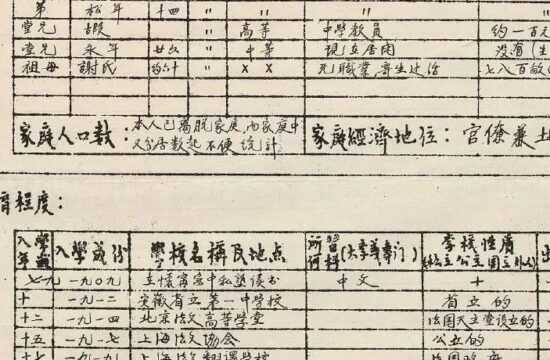 弟 松年 十四 〃 〃 〃 〃
堂兄 嘏 〃 高等 中學教員 約一百元
堂兄 永年 廿八 〃 中等 現立居閑 没有
祖母 謝氏 〃 × × 无職業，寄生过活 七八百畝
家庭人口數：本人已离脱家庭，而家庭中又分居數起不便統計
家庭經濟地位：官僚兼土
育程度：
入學年歲 入學歲份 學校名稱及地点 所習何科(大學義專门) 學校性質
七 一九〇九 在懷甯家中私塾读书 中文 十
十 一九一二 安徽省立第一中學校 省立的
十二 一九一四 北京法文高等學堂 法國天主堂設立的
十五 一九一七 上海法文協会 公立的
十七 一九一九 上海法文翻譯學校 法國政府